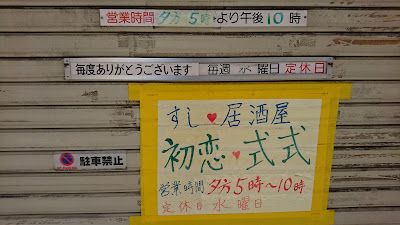 営業時間 夕方5時より午後10時
毎度ありがとうございます 毎週水曜日定休日
すし♥居酒屋
初恋♥式式
営業時間 夕方5時〜10時
定休日水曜日
駐車禁止